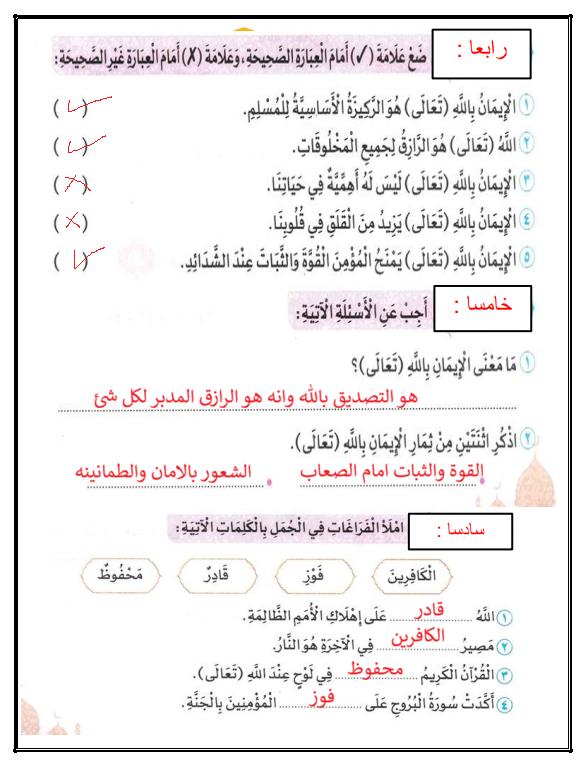 رابعا :
ضَعْ عَلَامَةَ (✓) أَمَامَ الْعِبَارَةِ الصَّحِيحَةِ، وَعَلَامَةَ (✗) أَمَامَ الْعِبَارَةِ غَيْرِ الصَّحِيحَةِ:
١ الْإِيمَانُ بِاللَّهِ (تَعَالَى) هُوَ الرَّكِيزَةُ الْأَسَاسِيَّةُ لِلْمُسْلِمِ. (✓)
٢ اللَّهُ (تَعَالَى) هُوَ الرَّازِقُ لِجَمِيعِ الْمَخْلُوقَاتِ. (✓)
٣ الْإِيمَانُ بِاللَّهِ (تَعَالَى) لَيْسَ لَهُ أَهَمِّيَّةٌ فِي حَيَاتِنَا. (✗)
٤ الْإِيمَانُ بِاللَّهِ (تَعَالَى) يَزِيدُ مِنَ الْقَلَقِ فِي قُلُوبِنَا. (✗)
٥ الْإِيمَانُ بِاللَّهِ (تَعَالَى) يَمْنَحُ الْمُؤْمِنَ الْقُوَّةَ وَالثَّبَاتَ عِنْدَ الشَّدَائِدِ. (✓)
خامسا :
أَجِبْ عَنِ الْأَسْئِلَةِ الْآتِيَةِ:
١ مَا مَعْنَى الْإِيمَانِ بِاللَّهِ (تَعَالَى)؟
هو التصديق بالله وانه هو الرازق المدبر لكل شئ
٢ اذْكُرِ اثْنَتَيْنِ مِنْ ثِمَارِ الْإِيمَانِ بِاللَّهِ (تَعَالَى).
القوة والثبات امام الصعاب • الشعور بالامان والطمانينه •
سادسا :
امْلَأِ الْفَرَاغَاتِ فِي الْجُمَلِ بِالْكَلِمَاتِ الْآتِيَةِ:
الْكَافِرِينَ فَوْزِ قَادِرٌ مَحْفُوظٌ
١ اللَّهُ قادر عَلَى إِهْلَاكِ الْأُمَمِ الظَّالِمَةِ.
٢ مَصِيرُ الكافرين فِي الْآخِرَةِ هُوَ النَّارُ.
٣ الْقُرْآنُ الْكَرِيمُ محفوظ فِي لَوْحٍ عِنْدَ اللَّهِ (تَعَالَى).
٤ أَكَّدَتْ سُورَةُ الْبُرُوجِ عَلَى فوز الْمُؤْمِنِينَ بِالْجَنَّةِ.